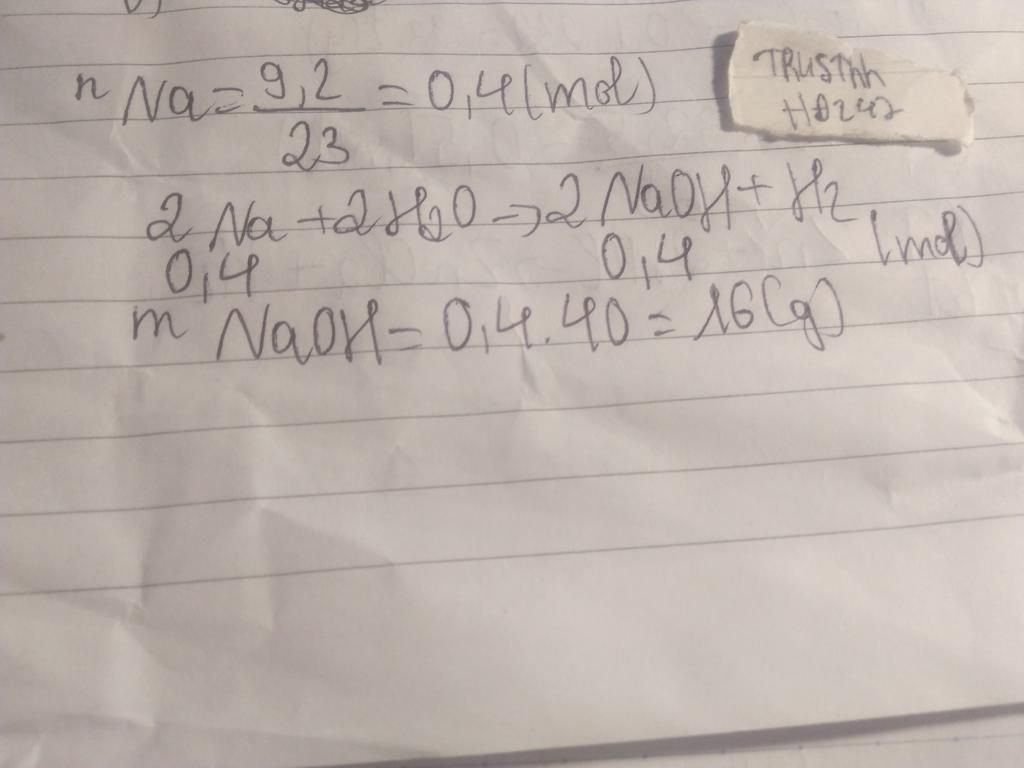 n Na = 9,2 / 23 = 0,4 (mol)
TRUSTHH
HD247
2 Na + 2 H2O → 2 NaOH + H2
0,4 0,4 (mol)
m NaOH = 0,4 . 40 = 16 (g)